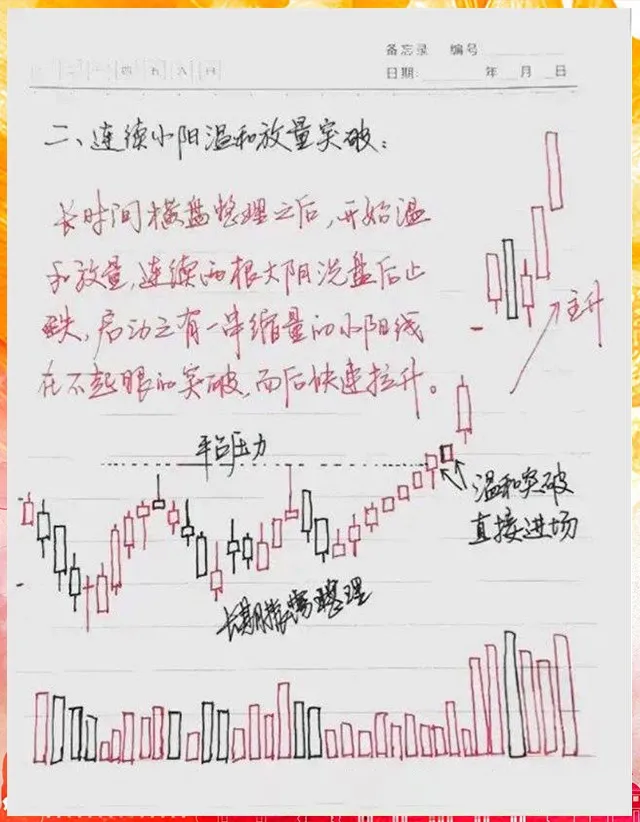 备忘录 编号
日期: 年 月 日
二 三 四 五 六 日
二、连续小阳温和放量突破：
长时间横盘整理之后，开始温
和放量，连续两根大阴洗盘后止
跌，启动之有一串缩量的小阳线
在不起眼的突破，而后快速拉升。
主升
平台压力
温和突破
直接进场
长期横盘整理